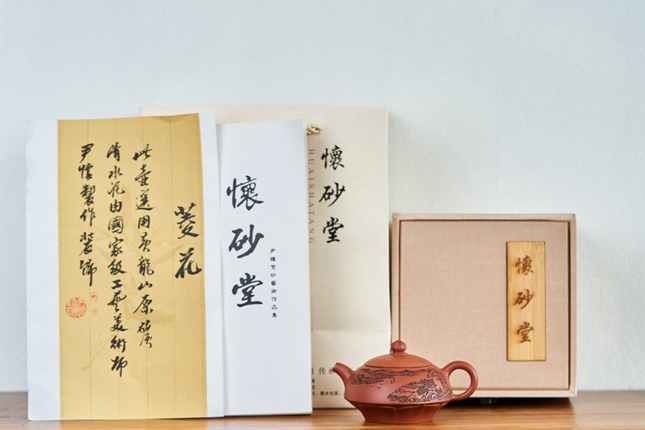 菱花
此壺選用黄龍山原矿质
清水泥由國家級工藝美術師
尹懷製作裝飾
懷砂堂
尹懷紫砂藝術作品集
懷砂堂
HUAISHATANG
懷砂堂